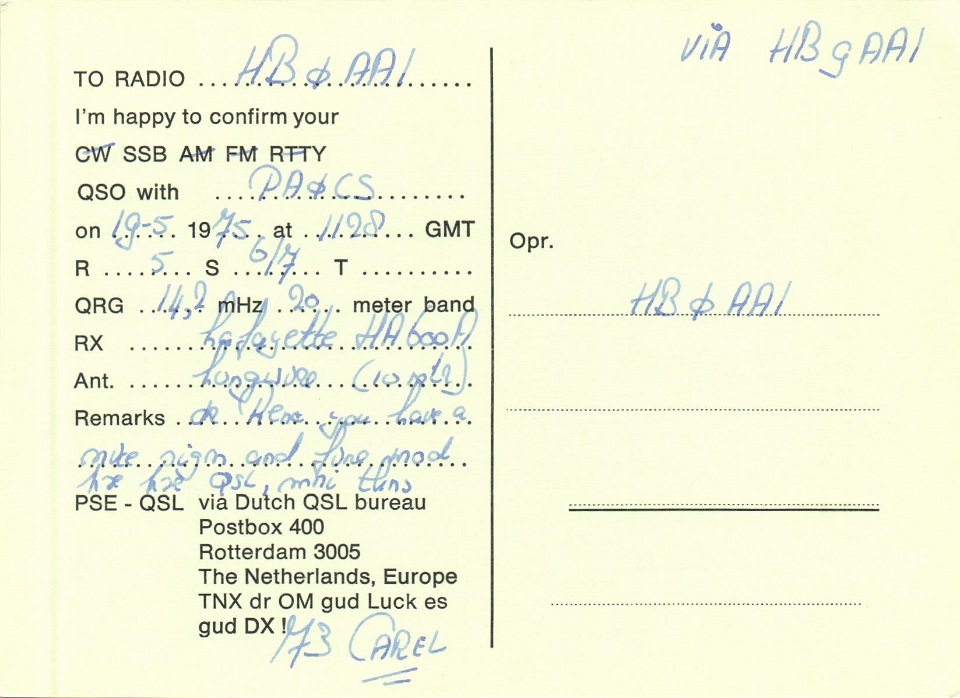 TO RADIO HBφAAI
I'm happy to confirm your
CW SSB AM FM RTTY
QSO with PAφCS
on 19-5 1975 at 1128 GMT
R 5 S 6/7 T
QRG 14,2 mHz 20 meter band
RX Lafayette HA600A
Ant. Longwire (10 mtr)
Remarks dr Rene you have a
nice sign and fine mod
hr hr QSL, mni thns
PSE - QSL via Dutch QSL bureau
Postbox 400
Rotterdam 3005
The Netherlands, Europe
TNX dr OM gud Luck es
gud DX ! 73 CAREL
VIA HB9AAI
Opr.
HBφAAI